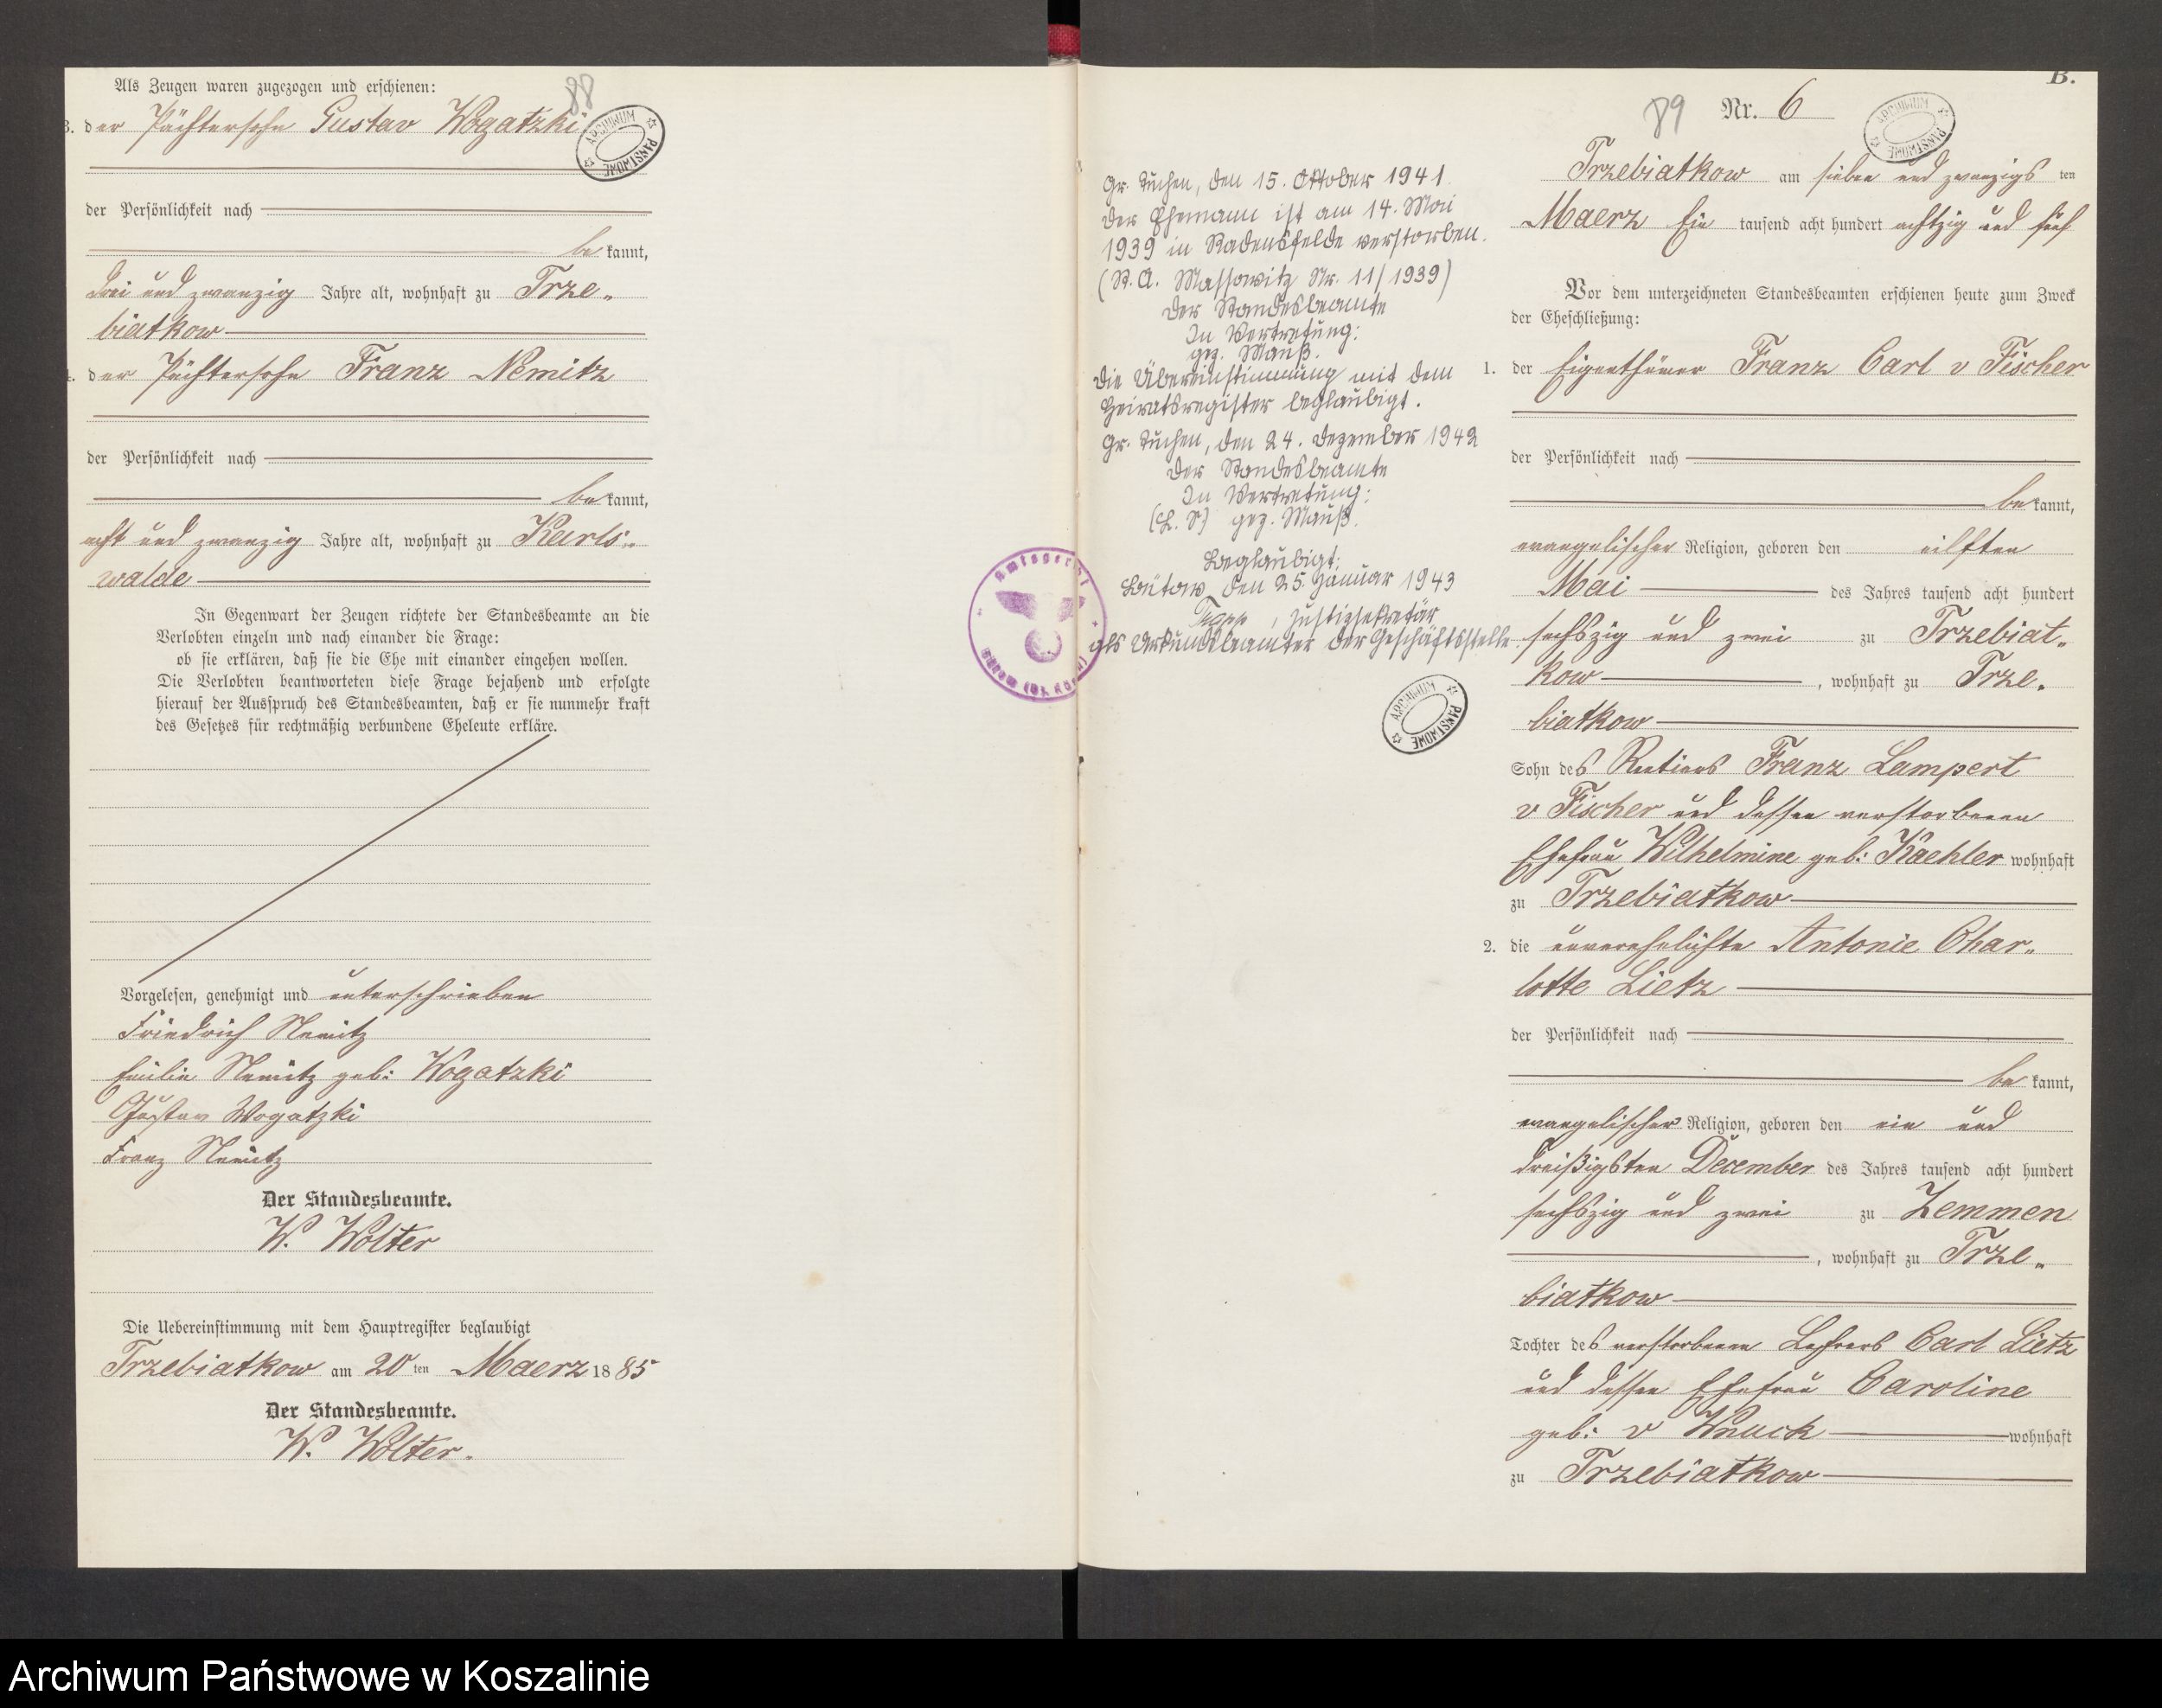 88
Als Zeugen waren zugezogen und erschienen:
3. der Pächtersohn Gustav Wogatzki
ARCHIWUM PAŃSTWOWE
der Persönlichkeit nach
bekannt,
drei und zwanzig Jahre alt, wohnhaft zu Trze-
biatkow
4. der Pächtersohn Franz Nemitz
der Persönlichkeit nach
bekannt,
acht und zwanzig Jahre alt, wohnhaft zu Karls-
walde
In Gegenwart der Zeugen richtete der Standesbeamte an die
Verlobten einzeln und nach einander die Frage:
ob sie erklären, daß sie die Ehe mit einander eingehen wollen.
Die Verlobten beantworteten diese Frage bejahend und erfolgte
hierauf der Ausspruch des Standesbeamten, daß er sie nunmehr kraft
des Gesetzes für rechtmäßig verbundene Eheleute erkläre.
Vorgelesen, genehmigt und unterschrieben
Friedrich Nemitz
Emilie Nemitz geb: Wogatzki
Gustav Wogatzki
Franz Nemitz
Der Standesbeamte.
W. Wolter
Die Uebereinstimmung mit dem Hauptregister beglaubigt
Trzebiatkow am 20 ten Maerz 1885
Der Standesbeamte.
W. Wolter.
Gr. Tuchen, den 15. Oktober 1941.
Der Ehemann ist am 14. Mai
1939 in Radensfelde verstorben.
(St. A. Massowitz Nr. 11/1939)
Der Standesbeamte
In Vertretung:
gez. Mauß.
Die Übereinstimmung mit dem
Heiratsregister beglaubigt.
Gr. Tuchen, den 24. Dezember 1942
Der Standesbeamte
In Vertretung:
(L. S) gez. Mauß.
Beglaubigt:
Bütow, den 25. Januar 1943
, Justizsekretär
als Urkundsbeamter der Geschäftsstelle.
Amtsgericht
ARCHIWUM PAŃSTWOWE
B.
89
Nr. 6
ARCHIWUM PAŃSTWOWE
Trzebiatkow am sieben und zwanzigs ten
Maerz Ein tausend acht hundert achtzig und fünf
Vor dem unterzeichneten Standesbeamten erschienen heute zum Zweck
der Eheschließung:
1. der Eigenthümer Franz Carl v Fischer
der Persönlichkeit nach
bekannt,
evangelischer Religion, geboren den eilften
Mai des Jahres tausend acht hundert
sechszig und zwei zu Trzebiat-
kow, wohnhaft zu Trze-
biatkow
Sohn des Rentiers Franz Lampert
v Fischer und dessen verstorbenen
Ehefrau Wilhelmine geb: Kaehler wohnhaft
zu Trzebiatkow
2. die unverehelichte Antonie Char-
lotte Lietz
der Persönlichkeit nach
bekannt,
evangelischer Religion, geboren den ein und
dreißigsten December des Jahres tausend acht hundert
sechszig und zwei zu Zemmen
, wohnhaft zu Trze-
biatkow
Tochter des verstorbenen Lehrers Carl Lietz
und dessen Ehefrau Caroline
geb: v Wnuck wohnhaft
zu Trzebiatkow
Archiwum Państwowe w Koszalinie